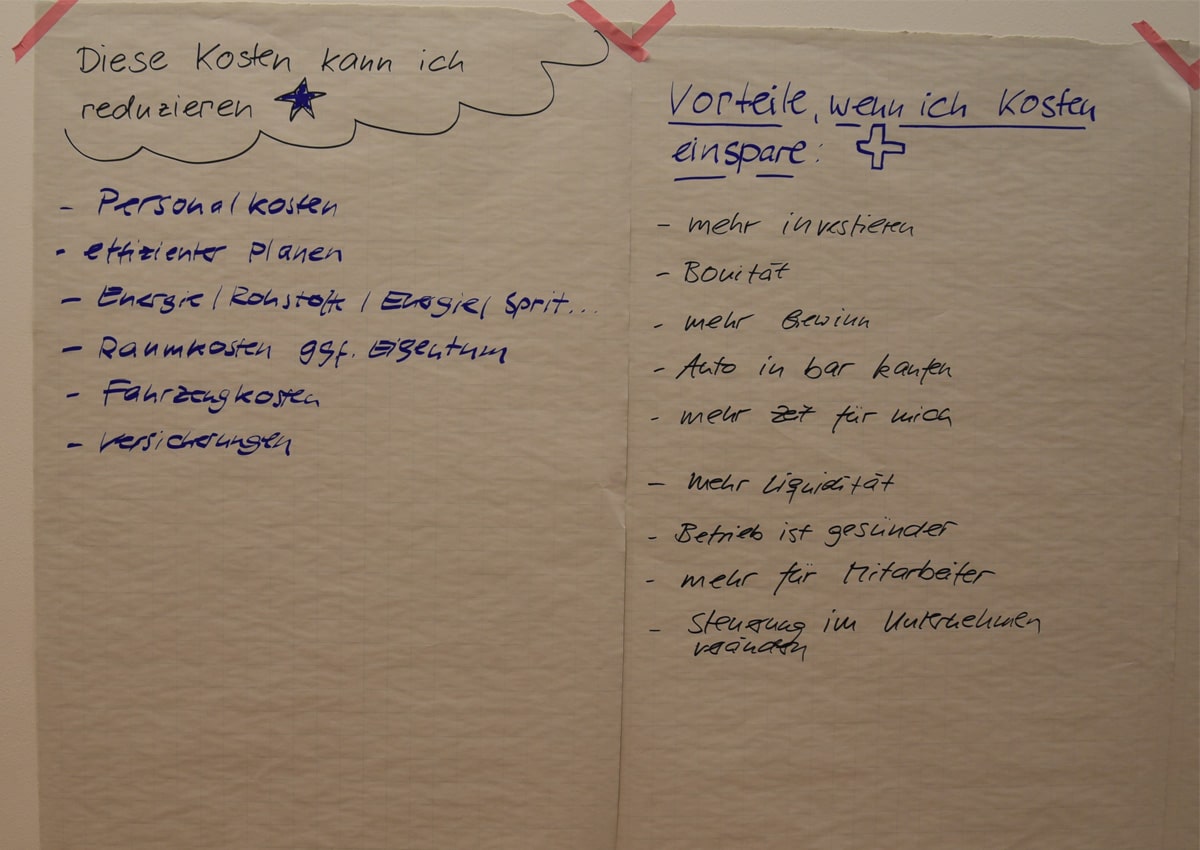 Diese Kosten kann ich
reduzieren
- Personalkosten
- effizienter Planen
- Energie / Rohstoffe / Energie / Sprit...
- Raumkosten ggf. Eigentum
- Fahrzeugkosten
- Versicherungen
Vorteile, wenn ich Kosten
einspare:
- mehr investieren
- Bonität
- mehr Gewinn
- Auto in bar kaufen
- mehr Zeit für mich
- mehr Liquidität
- Betrieb ist gesünder
- mehr für Mitarbeiter
- Steuerung im Unternehmen
verändern